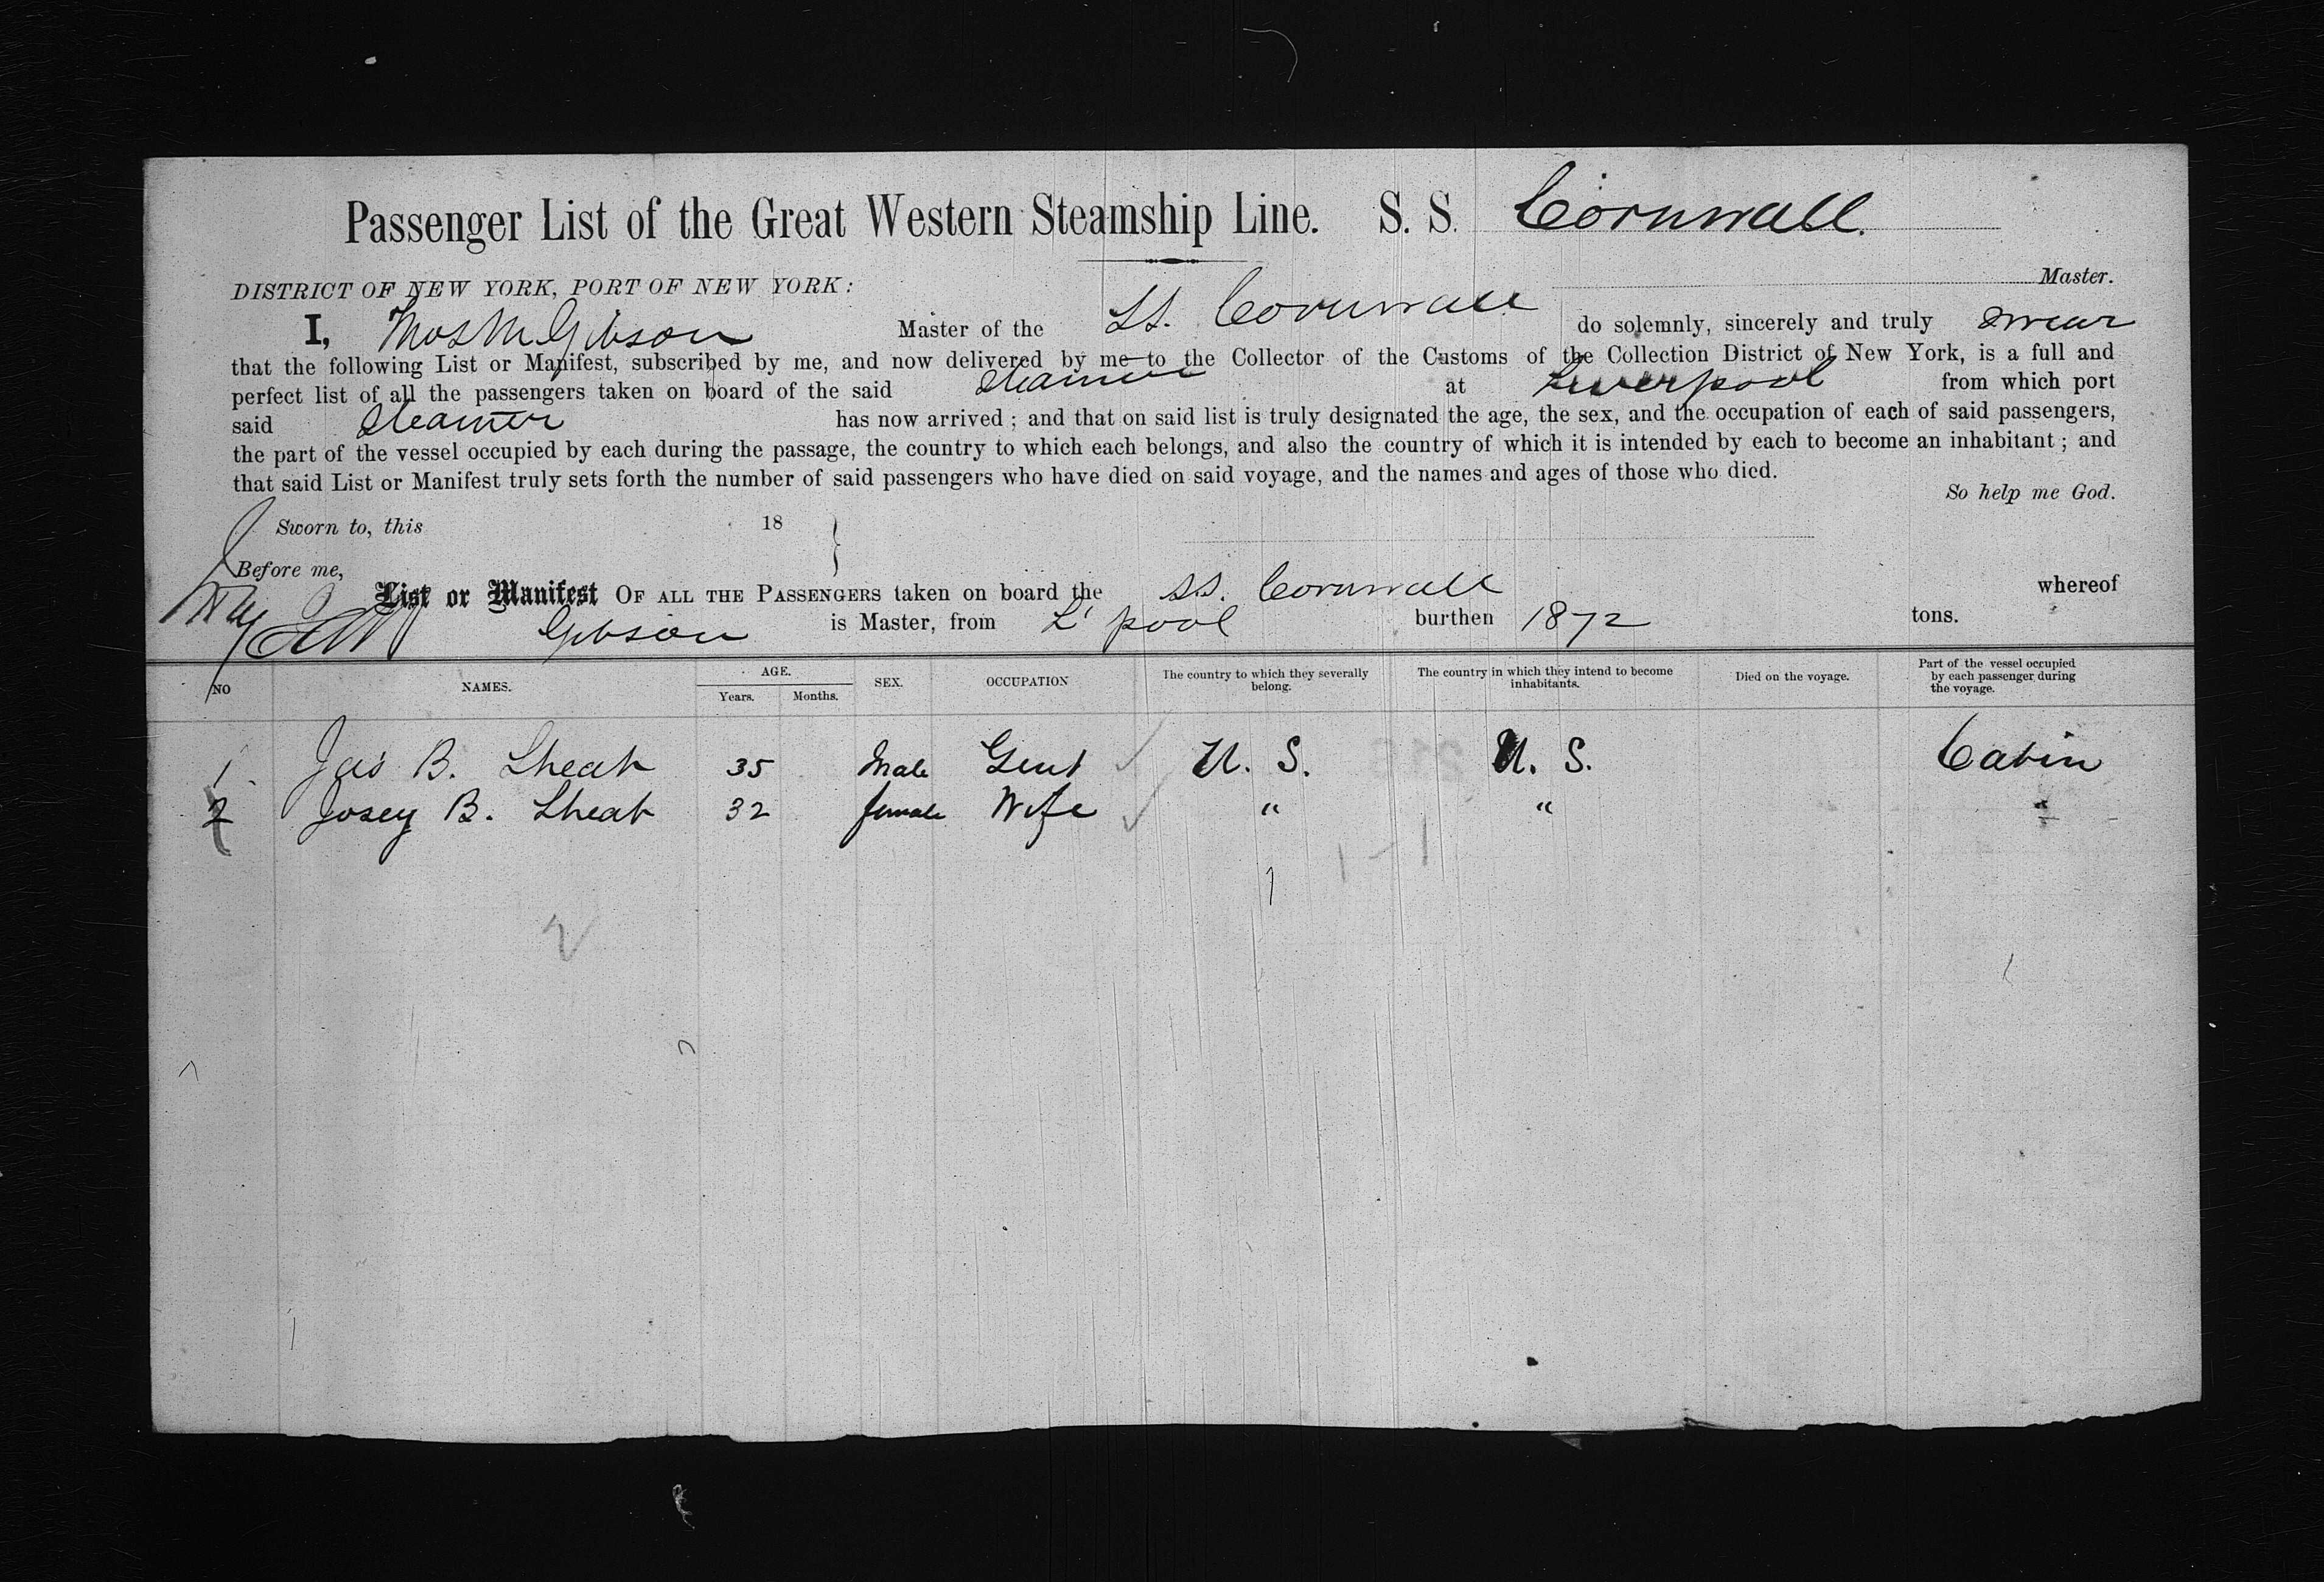 Passenger List of the Great Western Steamship Line. S. S. Cornwall.
DISTRICT OF NEW YORK, PORT OF NEW YORK: Master.
I, Thos M Gibson Master of the SS. Cornwall do solemnly, sincerely and truly swear
that the following List or Manifest, subscribed by me, and now delivered by me to the Collector of the Customs of the Collection District of New York, is a full and
perfect list of all the passengers taken on board of the said steamer at Liverpool from which port
said steamer has now arrived; and that on said list is truly designated the age, the sex, and the occupation of each of said passengers,
the part of the vessel occupied by each during the passage, the country to which each belongs, and also the country of which it is intended by each to become an inhabitant; and
that said List or Manifest truly sets forth the number of said passengers who have died on said voyage, and the names and ages of those who died.
So help me God.
Sworn to, this 18
Before me,
List or Manifest OF ALL THE PASSENGERS taken on board the SS. Cornwall whereof
Gibson is Master, from L'pool burthen 1872 tons.
NO NAMES. AGE. Years. Months. SEX. OCCUPATION The country to which they severally belong. The country in which they intend to become inhabitants. Died on the voyage. Part of the vessel occupied by each passenger during the voyage.
1 Jas B. 35 Male Gent U. S. U. S. Cabin
2 Josey B. 32 female Wife " " "
2